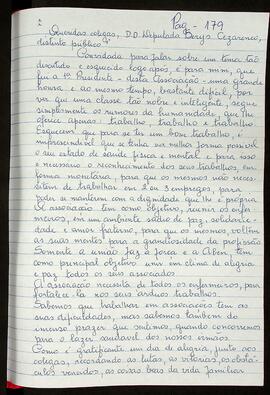 Pag - 179
Queridas colegas, D.D. Deputada Berys Cezareneo,
distinto público.
Convidada para falar sobre um tema tão
discutido e esquecido logo após, é para mim, que
fui a 1ª Presidente - desta Associação - uma grande
honra e ao mesmo tempo, bastante difícil, por
ver que uma classe tão nobre e inteligente, segue
simplesmente os rumores da humanidade, que lhe
oferece apenas: trabalho - trabalho e trabalho
Esquecem que para se ter um bom trabalho, é
imprescindível que se tenha na melhor forma possível
o seu estado de saúde física e mental. e para isso
é necessário o reconhecimento dos seus trabalhos em
forma monetária, para que os mesmos não neces-
sitem de trabalhar em 2 ou 3 empregos, para
poder se manterem com a dignidade que lhe é própria
A associação tem como objetivo, reunir os enfer-
meiros, em um ambiente sadio de paz, solidarie-
dade e amor fraterno, para que os mesmos voltem
as suas mentes para a grandiosidade da profissão
Somente a união faz a força e a Aben, tem
como principal objetivo unir em clima de alegria
e paz todos os seus associados
A associação necessita de todos os enfermeiros, para
fortalecê-la nos seus árduos trabalhos.
Sabemos que trabalhar em associações tem as
suas dificuldades, mas sabemos também do
imenso prazer que sentimos, quando concorremos
para o lazer saudável dos nossos irmãos.
Como é gratificante um dia de alegria, junto aos
colegas, recordando as lutas, as vitórias, os obstá-
culos vencidos, as coisas boas da vida familiar